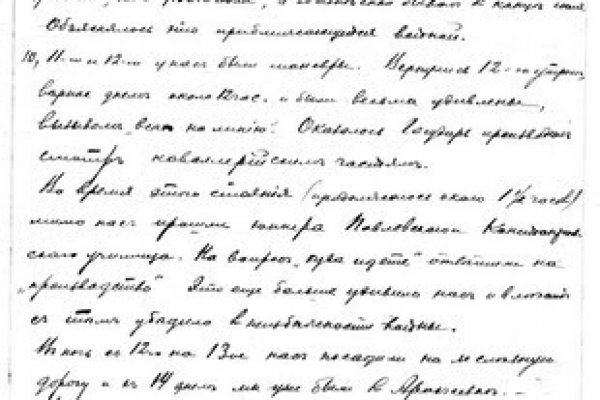 Объяснялось это приближающейся войной.
10, 11-го и 12-го у нас были маневры. Вернулись 12-го утром,
вернее днем около 12 час. и были весьма удивлены,
вызовом „всех на линию“. Оказалось Государь производит
смотръ кавалерийским частям.
Во время этого стояния (продолжалось около 1½ часов)
мимо нас прошли юнкера Павловского Константинов-
ского училища. На вопрос „куда идете“ отвѣтили на
„производство“ Это еще больше удивило нас и
с тем убедило в неизбежности войны.
В ночь с 12го на 13ое нас посадили на железную
дорогу и съ 14 днем мы уже были в